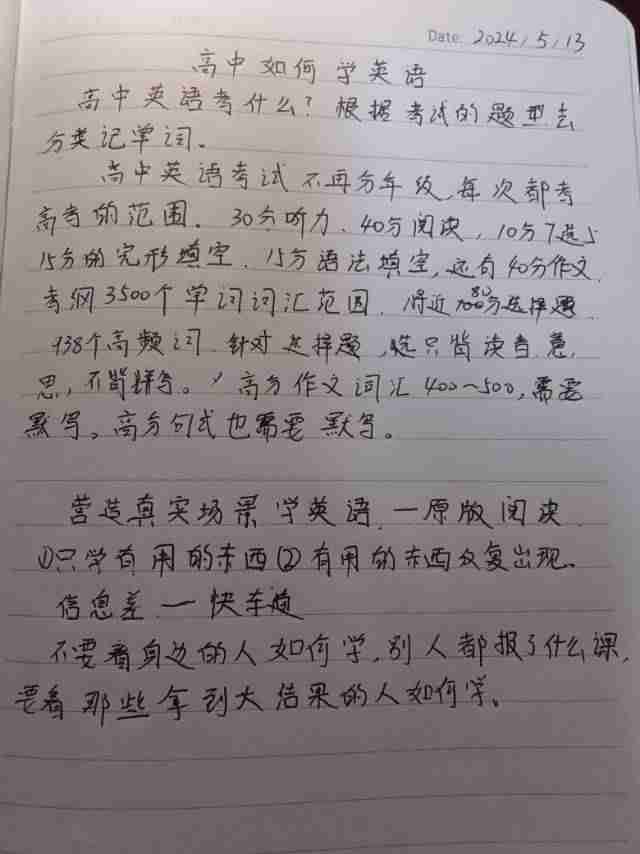 Date: 2024/5/13
高中如何学英语
高中英语考什么?根据考试的题型去
分类记单词。
高中英语考试不再分年级,每次都考
高考的范围。30分听力、40分阅读,10分7选5
15分的完形填空、15分语法填空,还有40分作文
考纲3500个单词词汇范围、将近80分选择题
938个高频词、针对选择题,选只背读音、意
思,不背拼写。高分作文词汇400~500,需要
默写。高分句式也需要默写。
营造真实场景学英语、一原版阅读
①只学有用的东西②有用的东西反复出现。
信息差 一 快车道
不要看身边的人如何学,别人都报了什么课,
要看那些拿到大结果的人如何学。